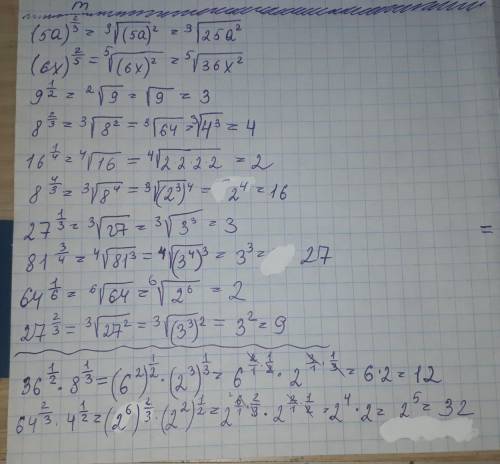 m
(5a)^{2/3} = ³√(5a)² = ³√25a²
(6x)^{2/5} = ⁵√(6x)² = ⁵√36x²
9^{1/2} = ²√9 = √9 = 3
8^{2/3} = ³√8² = ³√64 = ³√4³ = 4
16^{1/4} = ⁴√16 = ⁴√2 2 2 2 = 2
8^{4/3} = ³√8⁴ = ³√(2³)⁴ = 2⁴ = 16
27^{1/3} = ³√27 = ³√3³ = 3
=
81^{3/4} = ⁴√81³ = ⁴√(3⁴)³ = 3³ = 27
64^{1/6} = ⁶√64 = ⁶√2⁶ = 2
27^{2/3} = ³√27² = ³√(3³)² = 3² = 9
36^{1/2} · 8^{1/3} = (6²)^{1/2} · (2³)^{1/3} = 6^{2/1 · 1/2} · 2^{3/1 · 1/3} = 6·2 = 12
64^{2/3} · 4^{1/2} = (2⁶)^{2/3} · (2²)^{1/2} = 2^{6/1 · 2/3} · 2^{2/1 · 1/2} = 2⁴ · 2 = 2⁵ = 32